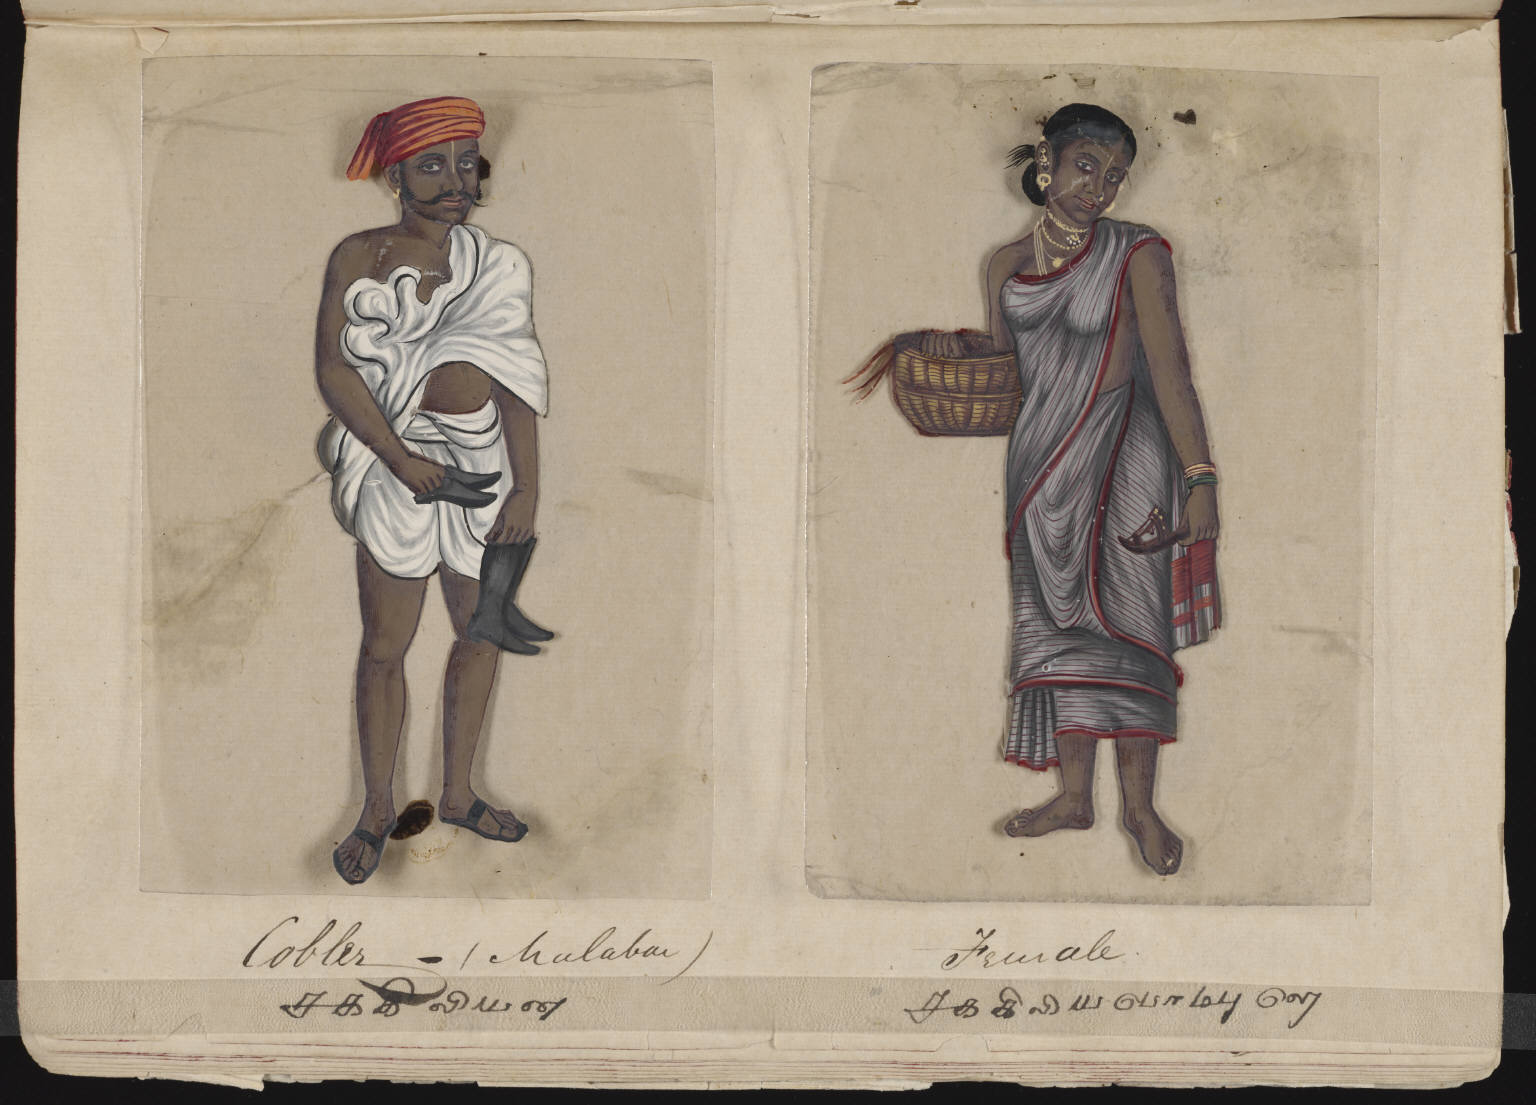 Cobler - (Malabar)
சககிலியன
Female.
சககிலியபொமபுளே